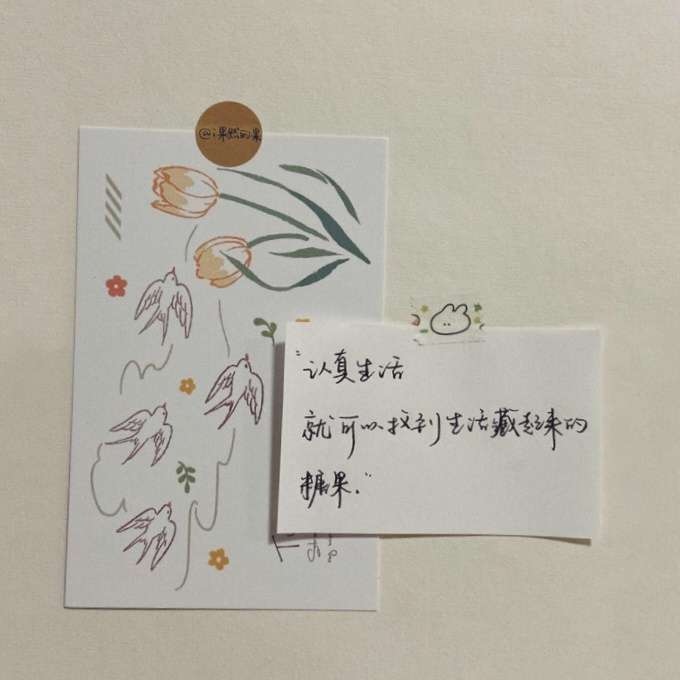 @果然的果
"认真生活
就可以找到生活藏起来的
糖果."